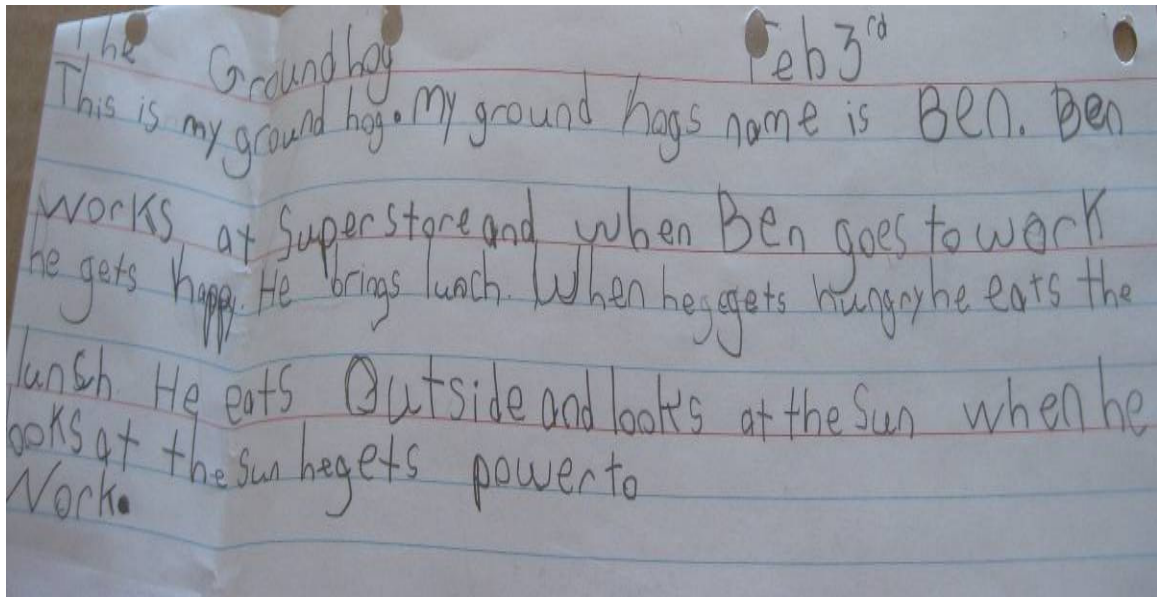 The Groundhog Feb 3rd
This is my ground hog. My ground hogs name is Ben. Ben
works at Superstore and when Ben goes to work
he gets happy. He brings lunch. When he gegets hungry he eats the
lunch. He eats Outside and looks at the Sun when he
ooks at the Sun he gets power to
Work.